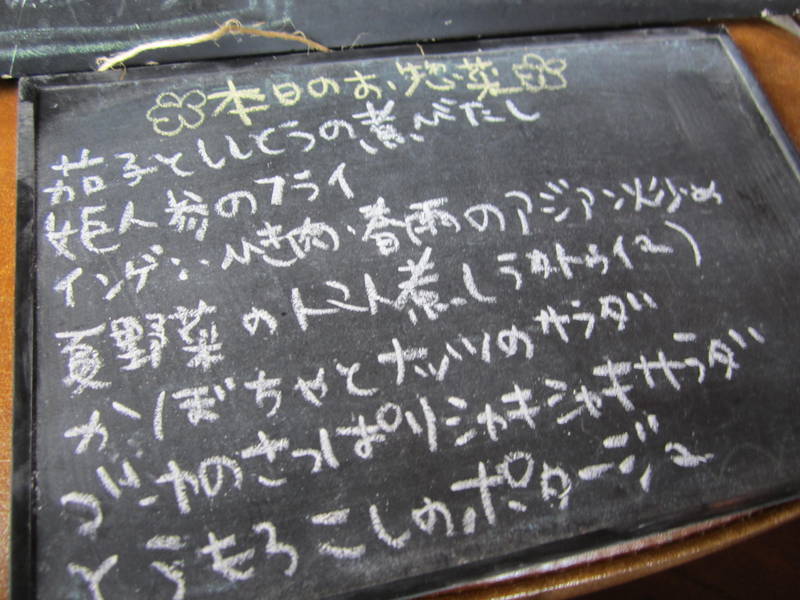 本日のお惣菜
茄子とししとうの煮びたし
姫人参のフライ
インゲン・ひき肉・春雨のアジアン炒め
夏野菜のトマト煮(ラタトゥイユ)
かぼちゃとナッツのサラダ
ゴーヤのさっぱりシャキシャキサラダ
とうもろこしのポタージュ